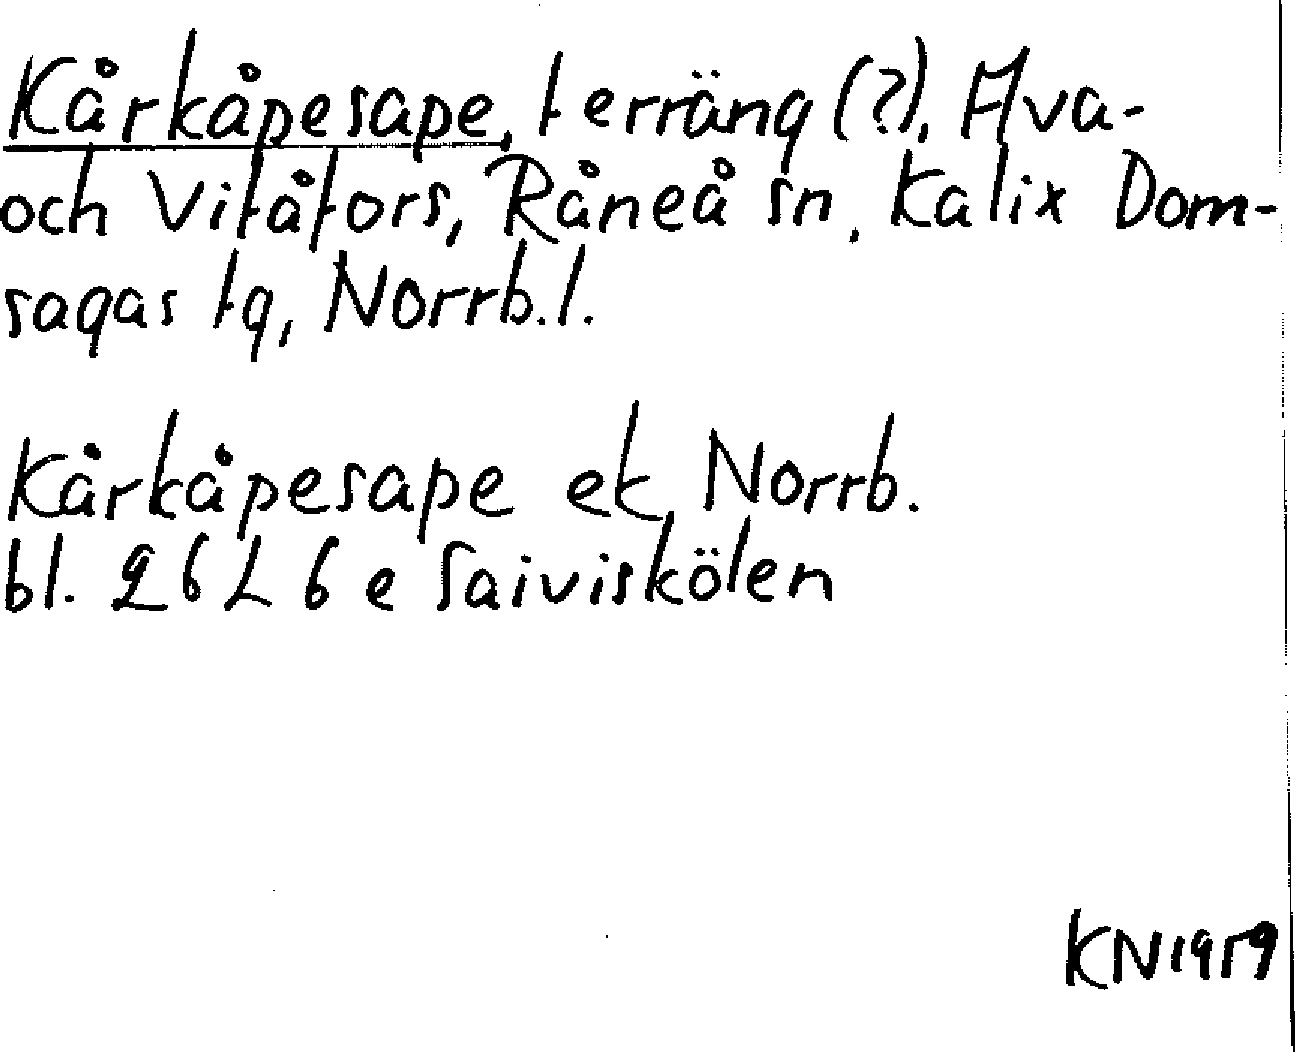 Kårkåpesape, terräng (?), Alva-
och Vitåfors, Råneå sn, Kalix Dom-
sagas tg, Norrb. l.
Kårkåpesape ek Norrb.
bl. 26 L 6 e Saiviskölen
KN 1959